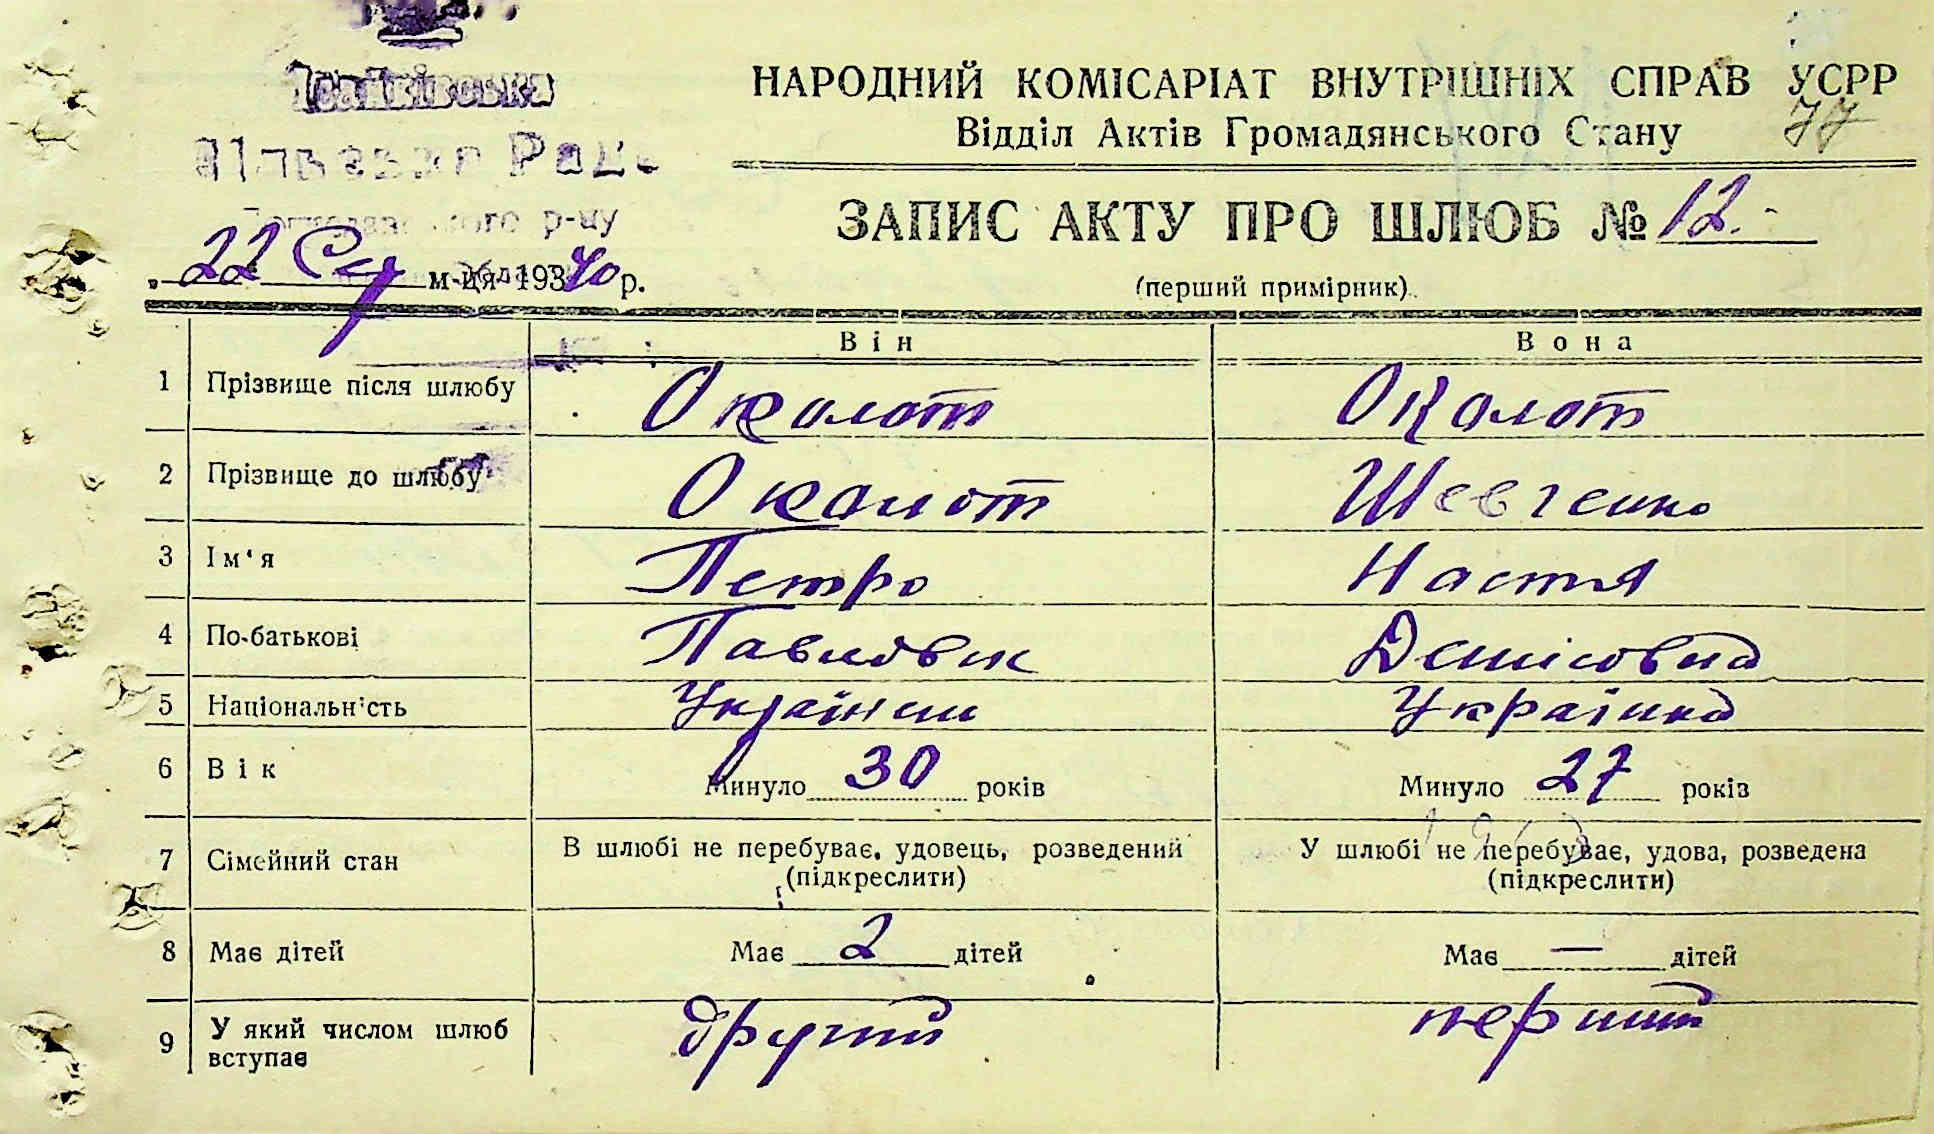 Іванківська
Сільська Рада
р-ну
НАРОДНИЙ КОМІСАРІАТ ВНУТРІШНІХ СПРАВ УСРР
Відділ Актів Громадянського Стану
77
ЗАПИС АКТУ ПРО ШЛЮБ № 12.
(перший примірник).
„22 м-ця 193 40 р.
Він Вона
1 Прізвище після шлюбу Околот Околот
2 Прізвище до шлюбу Околот Шевченко
3 Ім‘я Петро Настя
4 По-батькові Павлович Денісовна
5 Національність Українец Українка
6 Вік Минуло 30 років Минуло 27 років
7 Сімейний стан В шлюбі не перебуває, удовець, розведений (підкреслити) У шлюбі не перебуває, удова, розведена (підкреслити)
8 Має дітей Має 2 дітей Має — дітей
9 У який числом шлюб вступає другий перший